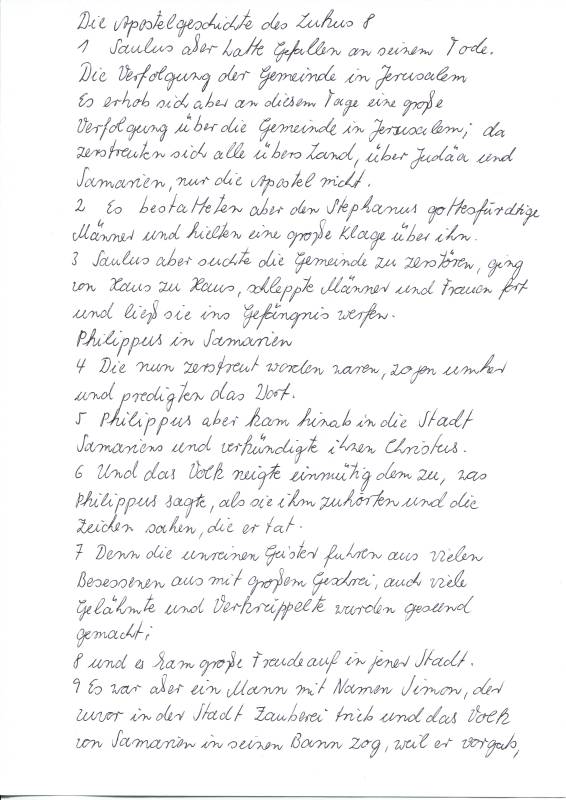 Die Apostelgeschichte des Lukas 8
1 Saulus aber hatte Gefallen an seinem Tode.
Die Verfolgung der Gemeinde in Jerusalem
Es erhob sich aber an diesem Tage eine große
Verfolgung über die Gemeinde in Jerusalem; da
zerstreuten sich alle übers Land, über Judäa und
Samarien, nur die Apostel nicht.
2 Es bestatteten aber den Stephanus gottesfürchtige
Männer und hielten eine große Klage über ihn.
3 Saulus aber suchte die Gemeinde zu zerstören, ging
von Haus zu Haus, schleppte Männer und Frauen fort
und ließ sie ins Gefängnis werfen.
Philippus in Samarien
4 Die nun zerstreut worden waren, zogen umher
und predigten das Wort.
5 Philippus aber kam hinab in die Stadt
Samariens und verkündigte ihnen Christus.
6 Und das Volk neigte einmütig dem zu, was
Philippus sagte, als sie ihm zuhörten und die
Zeichen sahen, die er tat.
7 Denn die unreinen Geister fuhren aus vielen
Besessenen aus mit großem Geschrei, auch viele
Gelähmte und Verkrüppelte wurden gesund
gemacht;
8 und es kam große Freude auf in jener Stadt.
9 Es war aber ein Mann mit Namen Simon, der
zuvor in der Stadt Zauberei trieb und das Volk
von Samarien in seinen Bann zog, weil er vorgab,